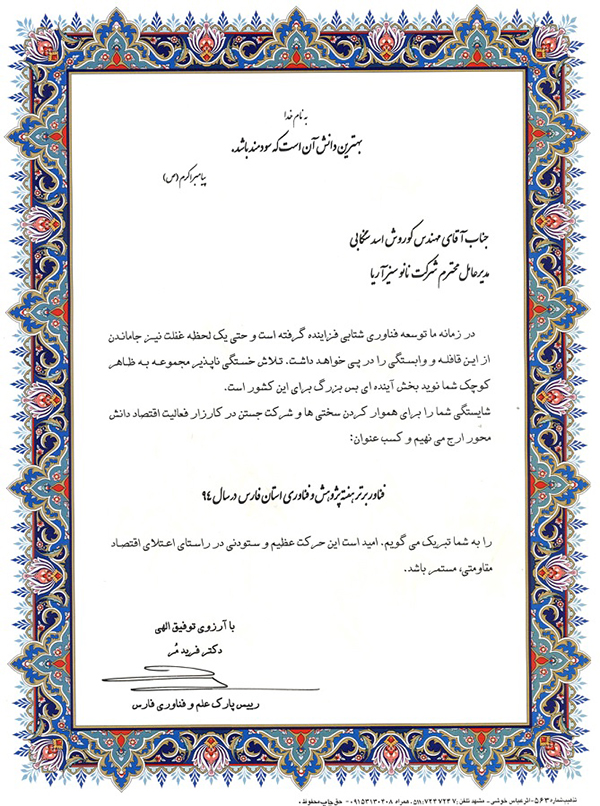 به نام خدا
بهترین دانش آن است که سودمند باشد.
پیامبر اکرم (ص)
جناب آقای مهندس کوروش اسدسنگابی
مدیرعامل محترم شرکت نانو سبز آریا
در زمانه ما توسعه فناوری شتابی فزاینده گرفته است و حتی یک لحظه غفلت نیز جاماندن
از این قافله و وابستگی را در پی خواهد داشت. تلاش خستگی ناپذیر مجموعه به ظاهر
کوچک شما نوید بخش آینده ای بس بزرگ برای این کشور است.
شایستگی شما را برای هموار کردن سختی ها و شرکت جستن در کارزار فعالیت اقتصاد دانش
محور ارج می نهیم و کسب عنوان:
فناور برتر هفته پژوهش و فناوری استان فارس در سال ۹۴
را به شما تبریک می گویم. امید است این حرکت عظیم و ستودنی در راستای اعتلای اقتصاد
مقاومتی، مستمر باشد.
با آرزوی توفیق الهی
دکتر فرید مُر
رییس پارک علم و فناوری فارس
شماره ۵۶۳ - اثر عباس خوشی - مشهد تلفن: ۷۲۴۷۲۴۷-۵۱۱ همراه ۰۹۱۵۳۱۳۰۴۰۸ - حق چاپ محفوظ